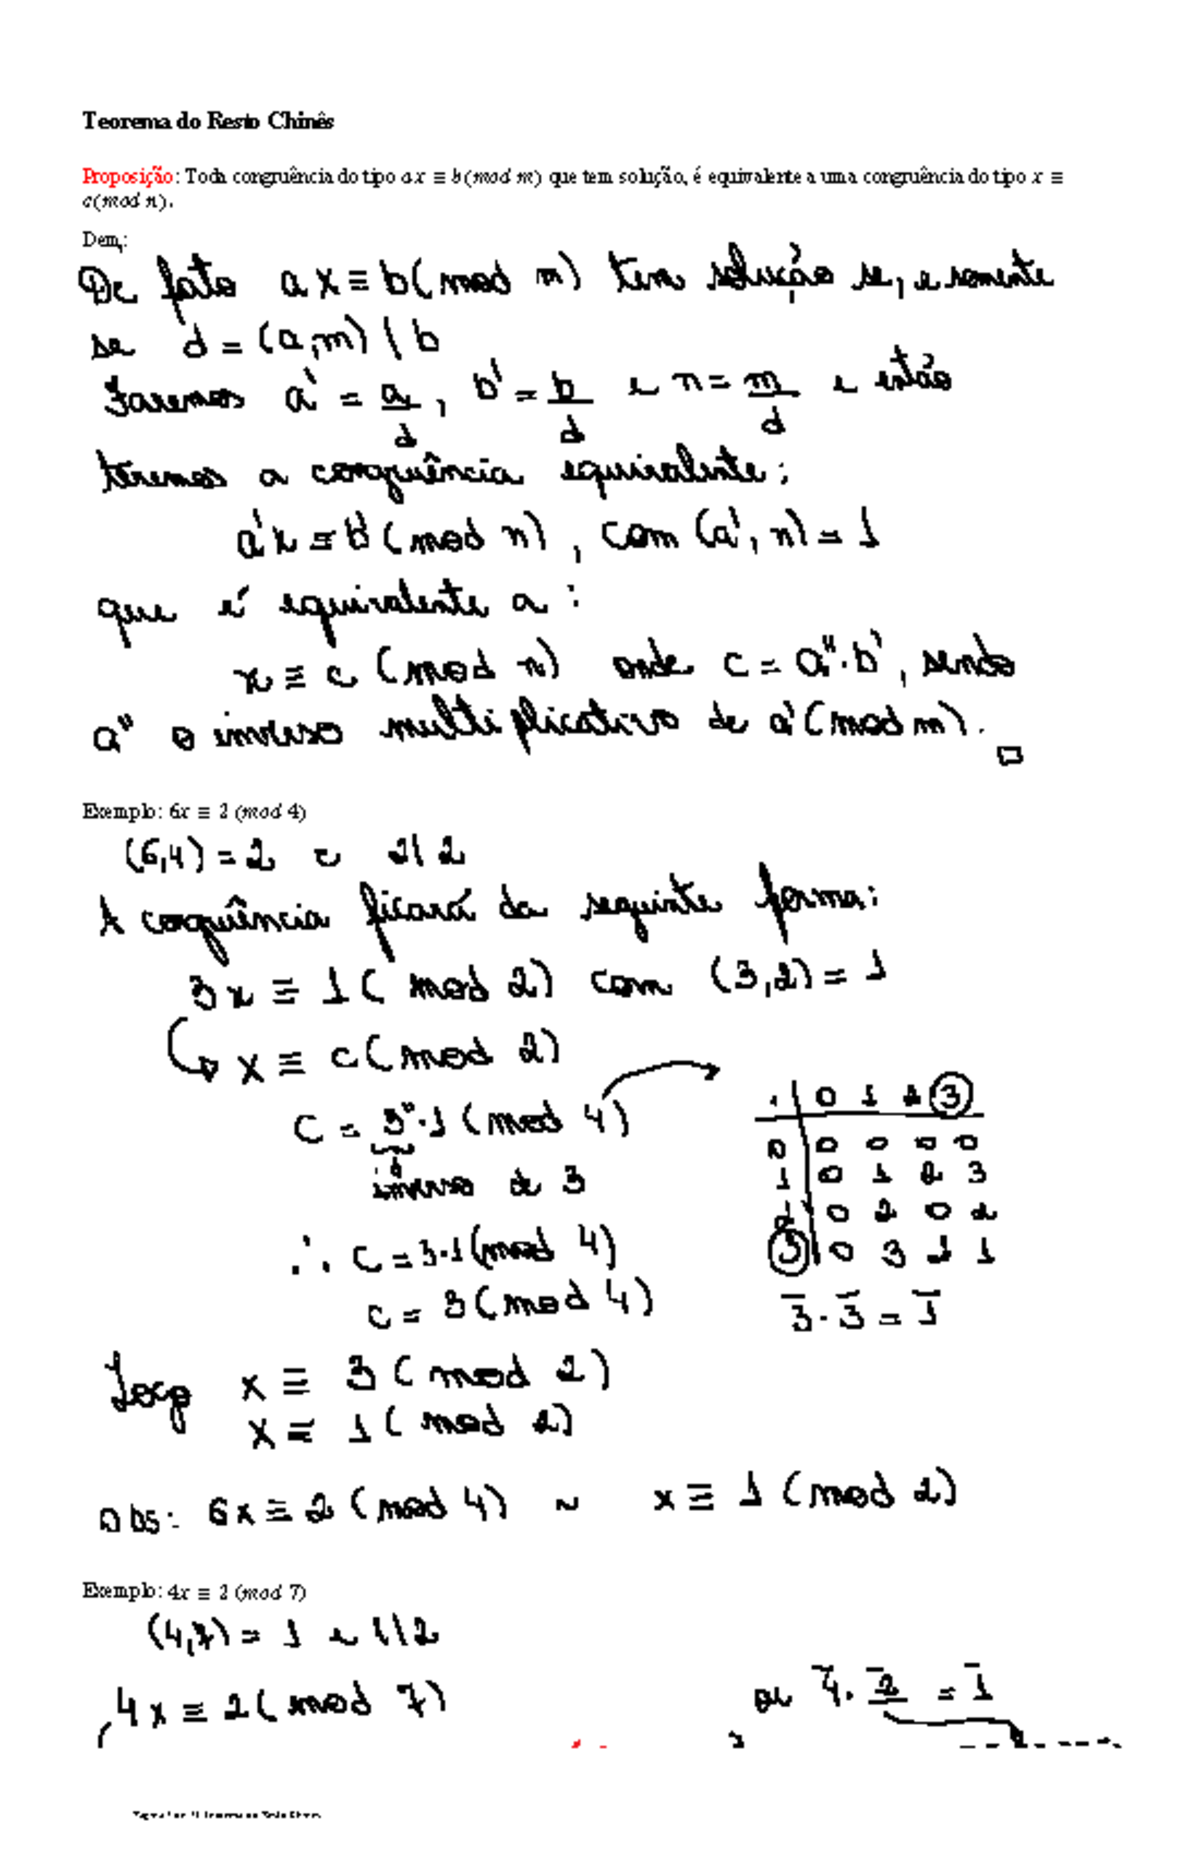 Teorema do Resto Chinês
Proposição: Toda congruência do tipo ax ≡ b(mod m) que tem solução, é equivalente a uma congruência do tipo x ≡
c(mod n).
Dem.:
De fato ax ≡ b(mod m) tem solução se, e somente
se d = (a,m) | b
Faremos a' = a/d, b' = b/d e n = m/d e então
teremos a congruência equivalente:
a'x ≡ b'(mod n), com (a', n) = 1
que é equivalente a:
x ≡ c (mod n) onde c = a''·b', sendo
a'' o inverso multiplicativo de a' (mod m). □
Exemplo: 6x ≡ 2 (mod 4)
(6,4) = 2 e 2|2
A congruência ficará da seguinte forma:
3x ≡ 1 (mod 2) com (3,2) = 1
↳ x ≡ c (mod 2)
C = 3''·1 (mod 4) →
inverso de 3
∴ C = 3·1 (mod 4)
C = 3 (mod 4)
· | 0 1 2 3
0 | 0 0 0 0
1 | 0 1 2 3
2 | 0 2 0 2
3 | 0 3 2 1
3̅ · 3̅ = 1̅
Logo x ≡ 3 (mod 2)
x ≡ 1 (mod 2)
obs: 6x ≡ 2 (mod 4) ~ x ≡ 1 (mod 2)
Exemplo: 4x ≡ 2 (mod 7)
(4,7) = 1 e 1|2
4x ≡ 2 (mod 7)
4̅ · 2̅ = 1̅